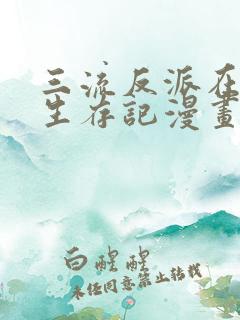 三流反派在
生存記漫畫
白醒醒
未经同意禁止转载